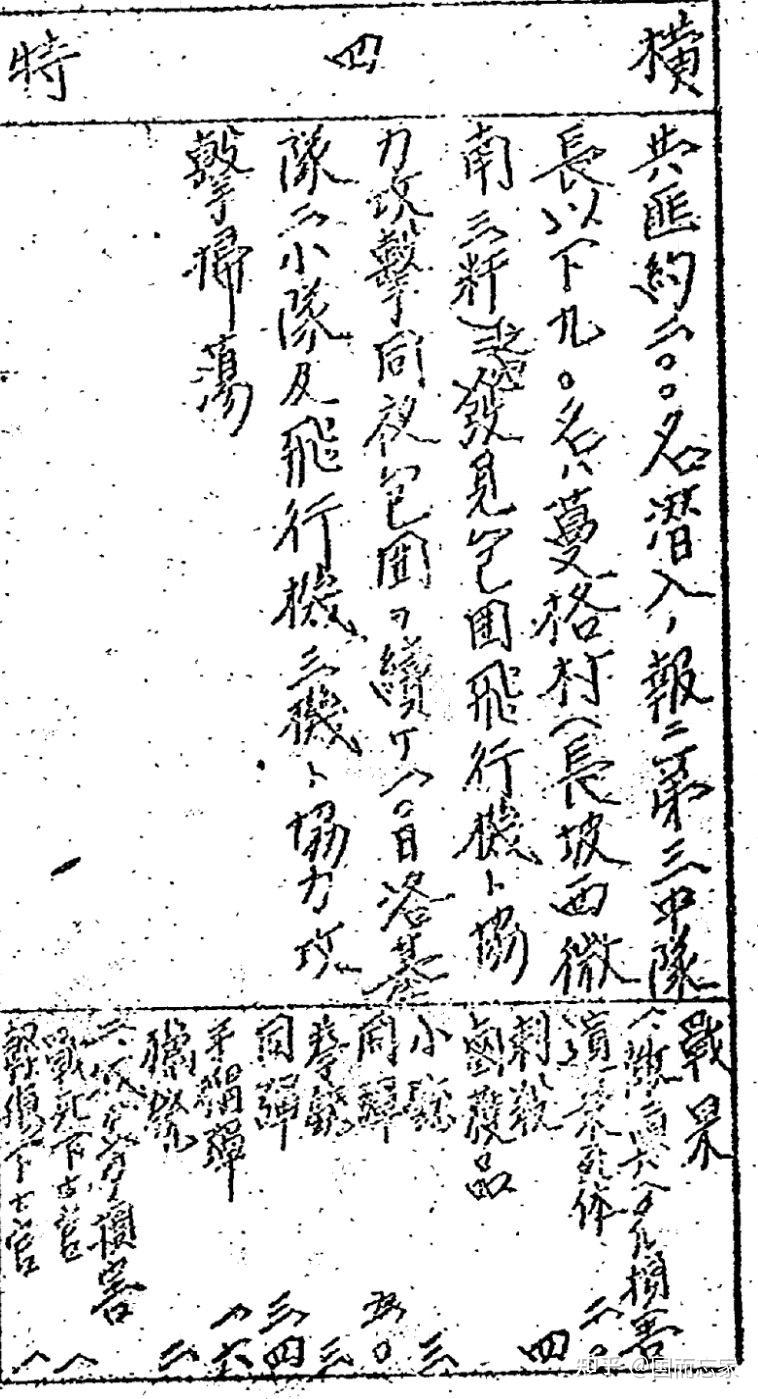 横
四
特
共匪約二〇〇名潜入ノ報ニ第三中隊
長以下九〇名ハ蔓格村(長坡西微
南三粁)ニ之ヲ發見包囲飛行機ト協
力攻擊同夜包囲ヲ續ケ八〇日洛基
隊二小隊及飛行機三機ト協力攻
擊掃蕩
戰果
遺棄死体 二〇
刺殺 四
鹵獲品
小銃 三
同彈 五〇
拳銃 三
同彈 三四
手榴彈 一六
獵銃 二
損害
戰死下士官 一
輕傷下士官 一
知乎 @国而忘家